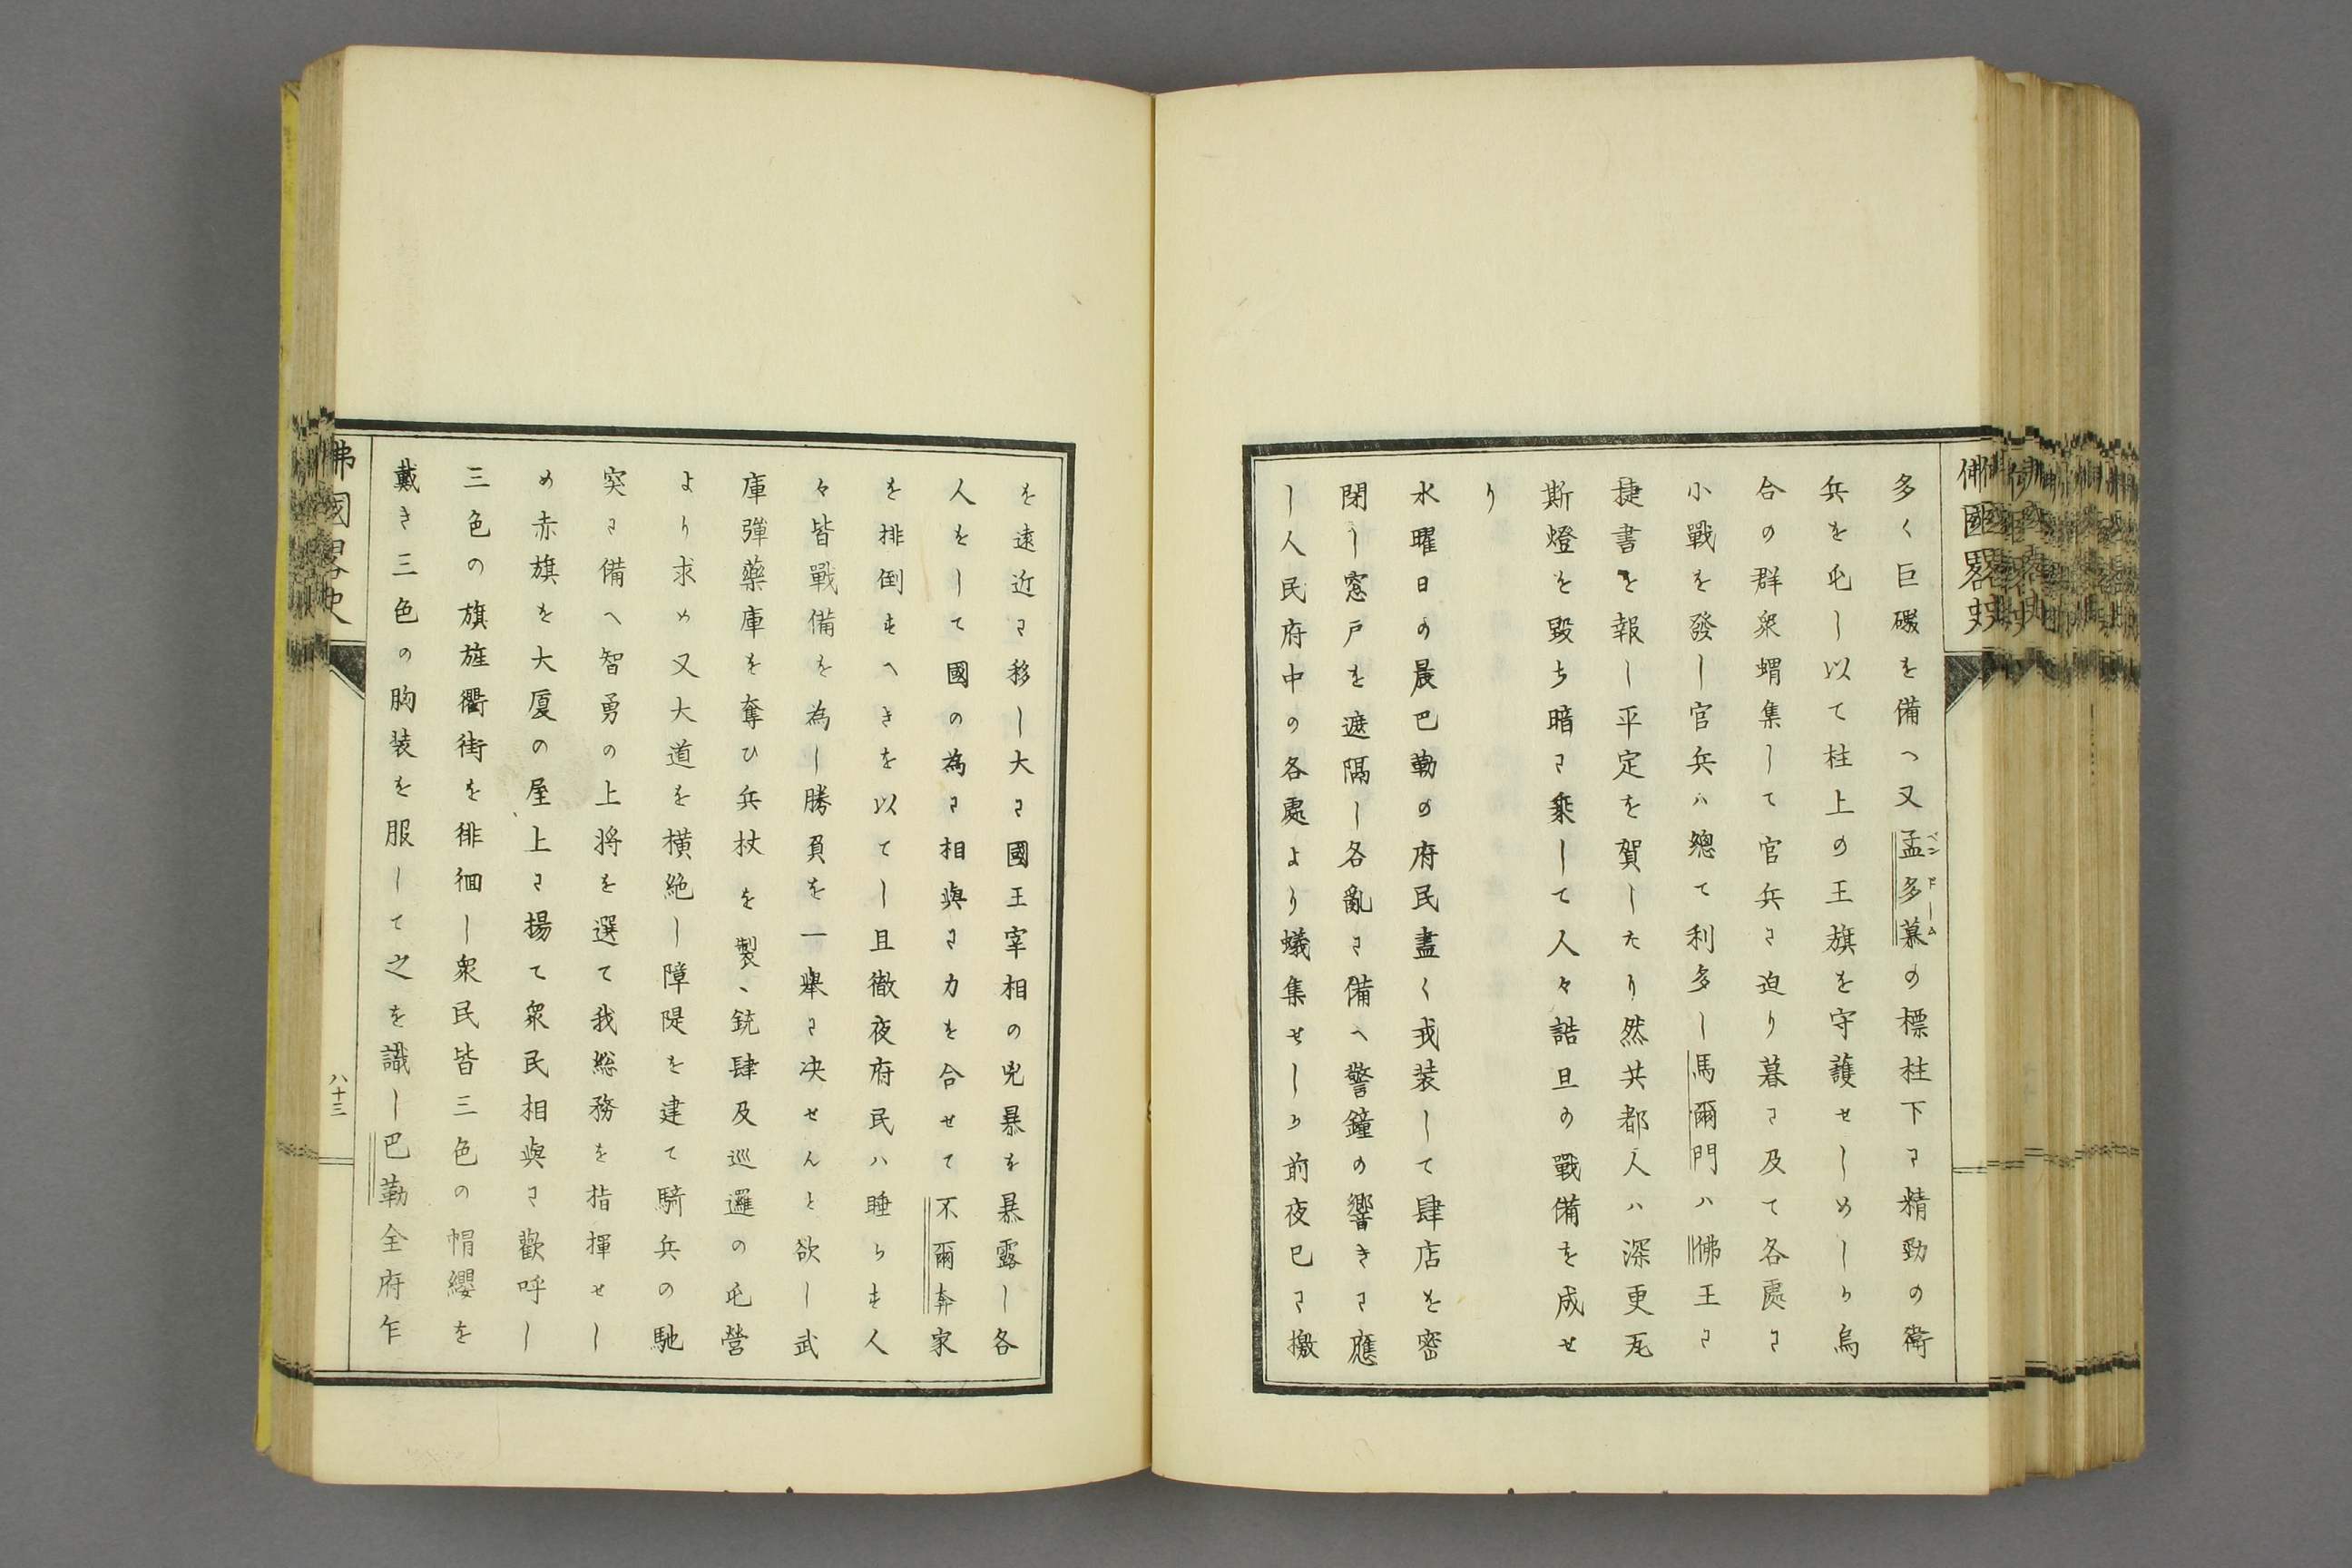 佛國畧史
多く巨礮を備へ又孟多慕の標柱下に精勁の衛
ベンドーム
兵を屯し以て柱上の王旗を守護せしめしか烏
合の群衆蝟集して官兵に迫り暮に及て各處に
小戰を發し官兵ハ總て利多し馬爾門ハ佛王に
捷書を報し平定を賀したり然共都人ハ深更瓦
斯燈を毀ち暗に乘して人々詰旦の戰備を成せ
り
水曜日の晨巴勒の府民盡く戎装して肆店を密
閉し窓戸を遮隔し各亂に備へ警鐘の響きに應
し人民府中の各處より蟻集せしか前夜已に檄
を遠近に移し大に國王宰相の兇暴を暴露し各
人をして國の為に相與に力を合せて不爾奔家
を排倒すへきを以てし且徹夜府民ハ睡らす人
々皆戰備を為し勝負を一擧に决せんと欲し武
庫彈藥庫を奪ひ兵杖を製、銃肆及巡邏の屯營
より求め又大道を横絶し障隄を建て騎兵の馳
突に備へ智勇の上将を選て我総務を指揮せし
め赤旗を大厦の屋上に揚て衆民相與に歡呼し
三色の旗旌衢街を徘徊し衆民皆三色の帽纓を
戴き三色の胸装を服して之を識し巴勒全府乍
佛國畧史
八十三